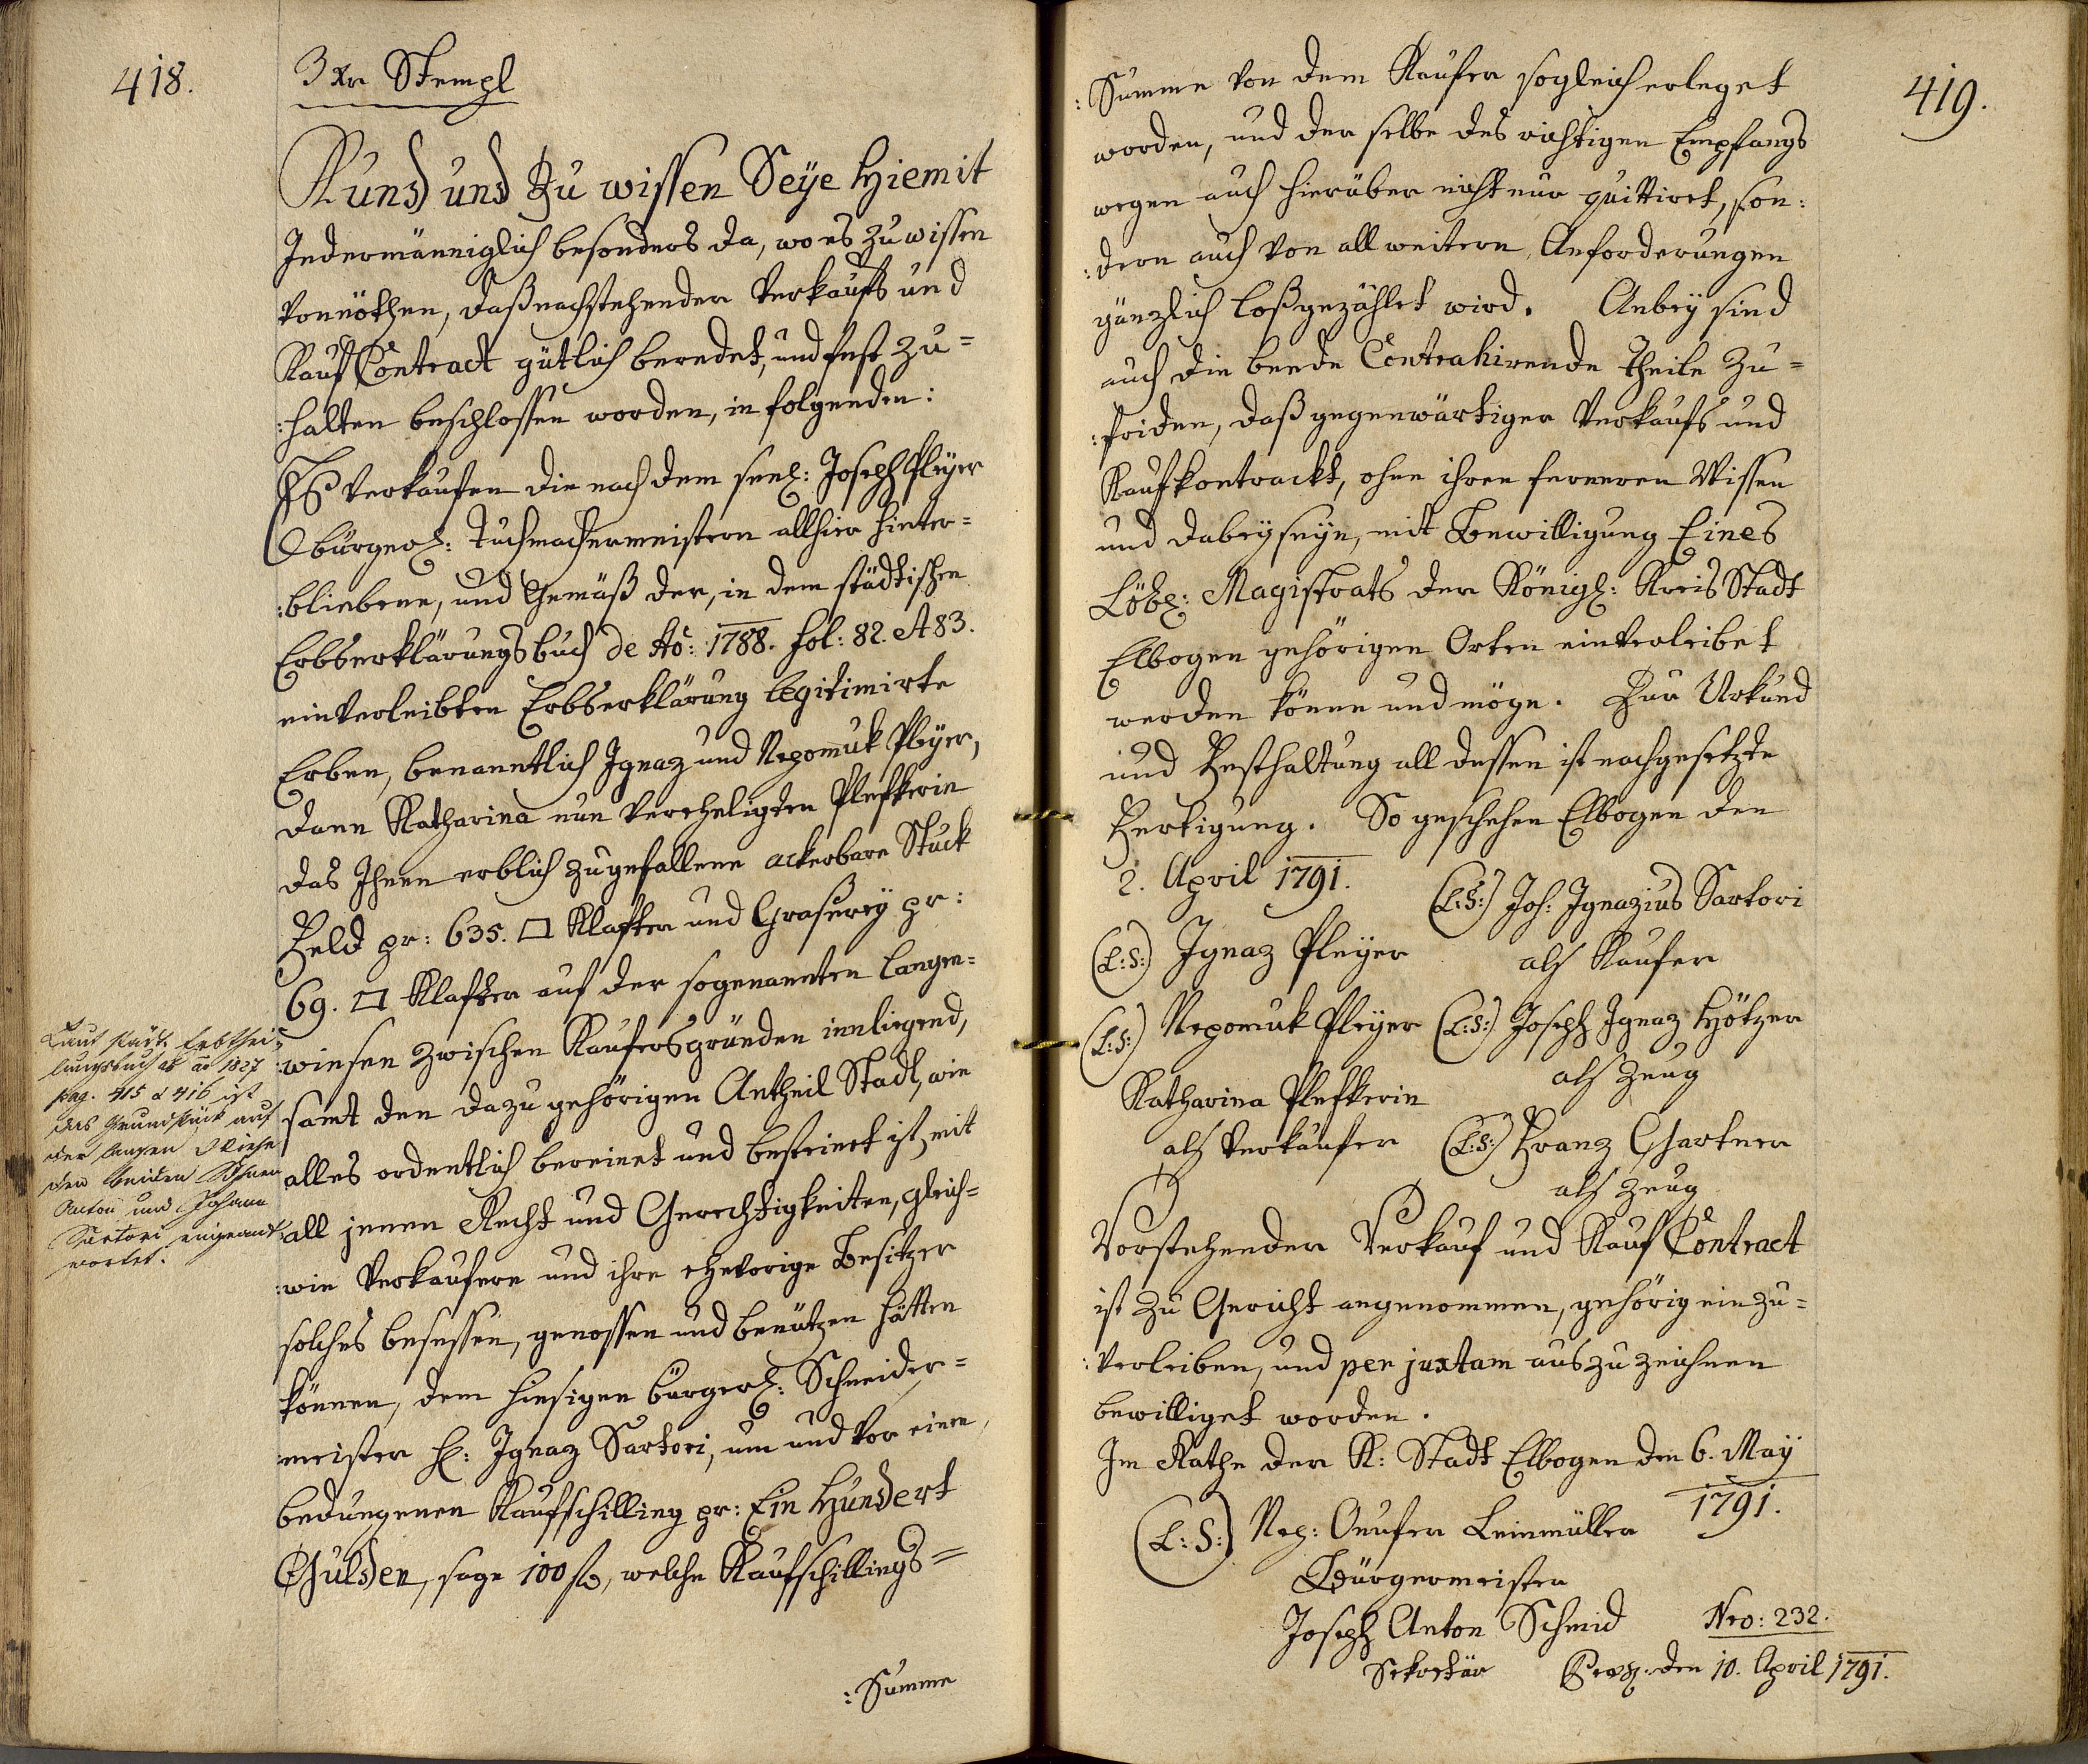 418.
3 Xr Stempl
Kund und Zu wissen Seÿe Hiemit
Jedermänniglich besonders da, wo es zu wissen
vonnöthen, daß nachstehender Verkaufs und
Kauf Contract gütlich beredet, und fest zu=
:halten beschlossen worden, in folgenden:
Es verkaufen die nach dem seel: Joseph Pleÿer
bürgerl: Tuchmachermeistern allhier hinter=
:bliebene, und Gemäß der, in dem städtischen
Erbserklärungsbuch de Aõ: 1788. fol: 82. et 83.
einverleibten Erbserklärung legitimirte
Erben, benanntlich Ignaz und Nepomuk Pleÿer,
dann Katharina nun verehligten Plefkerin
das Ihnen erblich zugefallene ackerbare Stuck
Feld pr: 635. □ Klafter und Graserey pr:
69. □ Klafter auf der sogenannten langen=
:wiesen zwischen Kaufersgründen innliegend,
samt den dazu gehörigen Antheil Stadl, wie
alles ordentlich bereinet und besteinet ist, mit
all jenen Recht und Gerechtigkeiten, gleich=
:wie Verkaufere und ihre ehevorige Besitzer
solches besessen, genossen und benützen hätten
können, dem hiesigen bürgerl: Schneider=
:meister H: Ignaz Sartori, um und vor einen
bedungenen Kaufschilling pr: Ein Hundert
Gulden, sage 100 f, welche Kaufschillings=
:Summe
Laut städt. Erbthei-
lungsbuch ab ao 1827
pag. 415 & 416 ist
das Grundstück auf
der langen Wiese
den beiden Söhnen
Anton und Johann
Sartori eingeant-
wortet.
419.
:Summe von dem Kaufer sogleich erleget
worden, und der selbe des richtigen Empfangs
wegen auch hierüber nicht nur quittiret, son:
:dern auch von all weitern Anforderungen
gänzlich loßgezählet wird. Anbeÿ sind
auch die beede Contrahirende Theile zu=
:friden, daß gegenwärtiger Verkaufs und
Kaufkontrackt, ohne ihren ferneren Wissen
und dabeÿseÿn, mit Bewilligung Eines
Löbl: Magistrats der Königl: Kreis Stadt
Elbogen gehörigen Orten einverleibet
werden könne und möge. Zur Urkund
und Festhaltung all dessen ist nachgesetzte
Fertigung. So geschehen Elbogen den
2. April 1791.
(L:S:) Joh: Ignazius Sartori
als Kaufer
(L:S:) Ignaz Pleÿer
(L:S:) Nepomuk Pleÿer
(L:S:) Joseph Ignaz Hötzer
als Zeug
Katharina Plefkerin
als Verkäufer
(L:S:) Franz Gartner
als Zeug
Vorstehender Verkauf und Kauf Contract
ist zu Gericht angenommen, gehörig ein zu=
:verleiben, und per juxtam auszuzeichnen
bewilliget worden.
Im Rathe der K: Stadt Elbogen den 6. Maÿ
1791.
(L:S:) Nep: Leinmüller
Bürgermeister
Joseph Anton Schmid
Sekretär
Nro: 232.
den 10. April 1791.